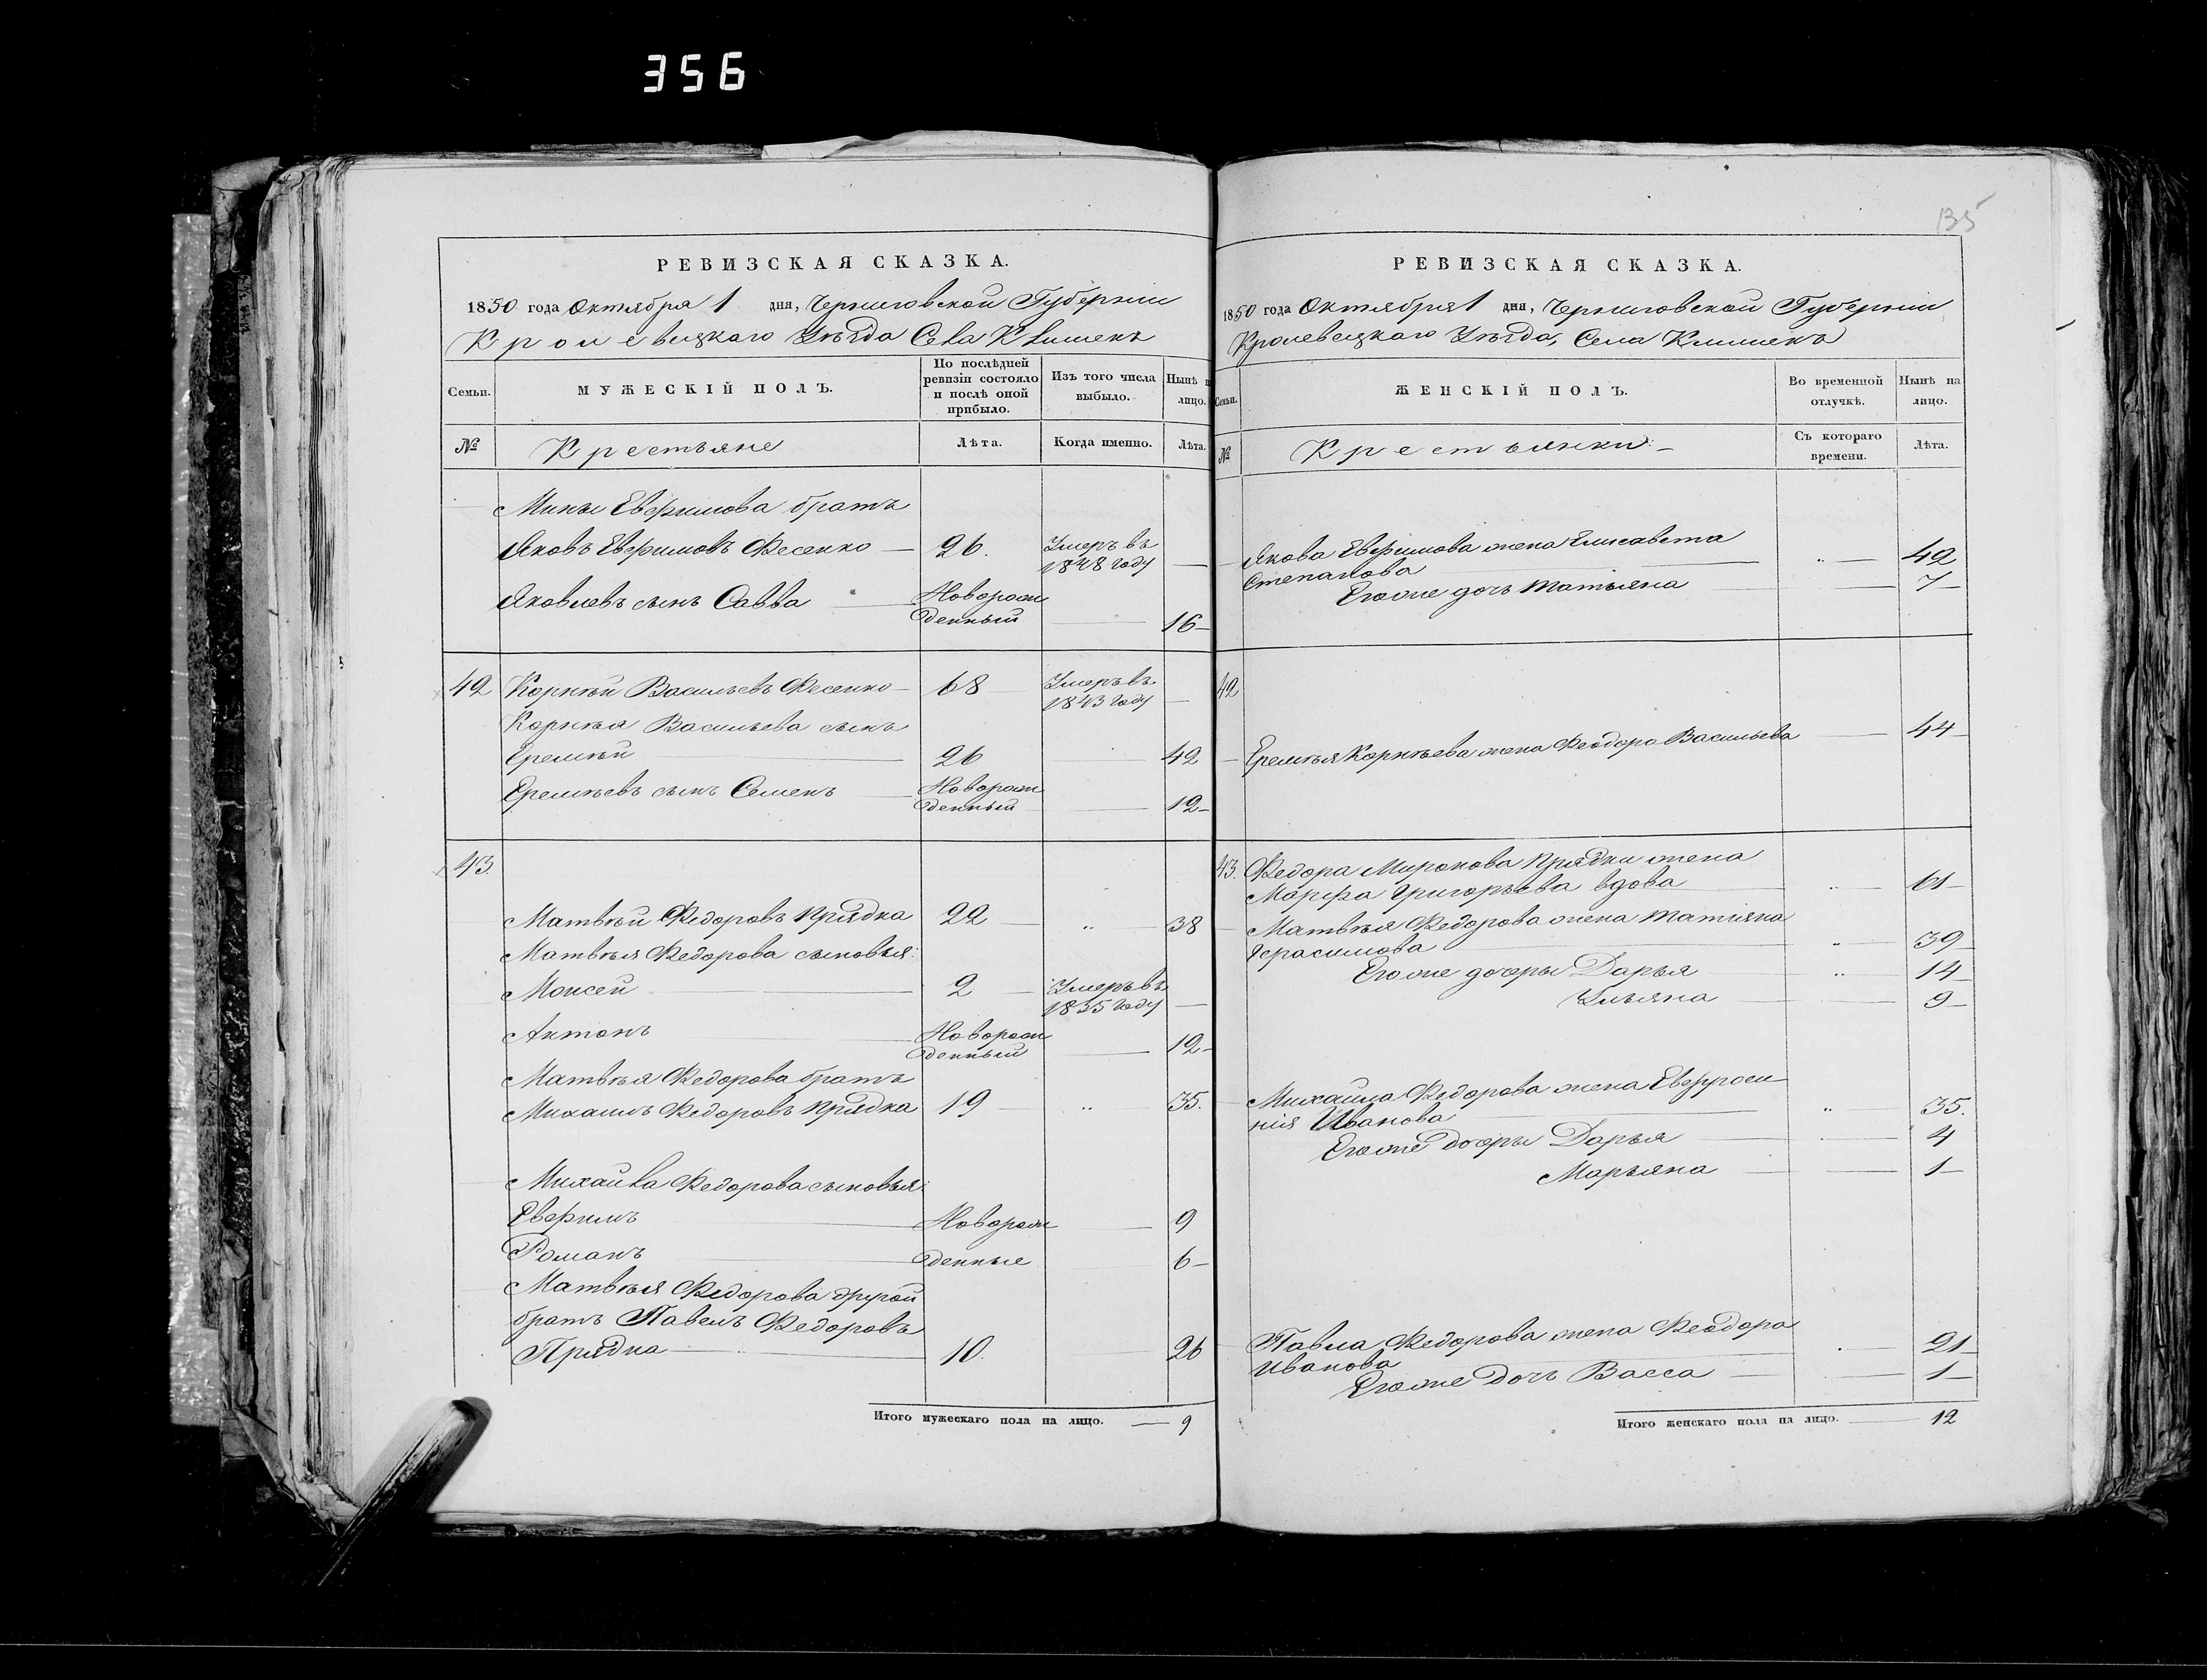 356
135
РЕВИЗСКАЯ СКАЗКА.
1850 года Октября 1 дня, Черниговской Губерніи
Кролевецкаго Уѣзда Села Клишекъ
Семьи.
МУЖЕСКІЙ ПОЛЪ.
По послѣдней
ревизіи состояло
и послѣ оной
прибыло.
Изъ того числа
выбыло.
Нынѣ н
лицо.
№
Крестьяне
Лѣта.
Когда именно.
Лѣта.
Мины Евфимова братъ
Яковъ Евфимовъ Фесенко — 26. Умеръ въ
1848 году —
Яковлевъ сынъ Савва — Новорож
денный — 16—
42 Корнѣй Васильевъ Фесенко — 68 Умеръ въ
1843 году —
Корнѣя Васильева сынъ
Еремѣй — 26 — 42
Еремѣевъ сынъ Семенъ — Новорож
денный — 12—
43.
Матвѣй Федоровъ Прядка 22 — „ — 38
Матвѣя Федорова сыновья:
Моисей — 2 — Умеръ въ
1835 году —
Антонъ — Новорож
денный — 12—
Матвѣя Федорова братъ
Михаилъ Федоровъ Прядка 19 — „ — 35.
Михайла Федорова сыновья:
Евфимъ — Новорож — 9
Романъ — денные — 6—
Матвѣя Федорова другой
братъ Павелъ Федоровъ
Прядка — 10. — 26
Итого мужескаго пола на лицо. — 9
РЕВИЗСКАЯ СКАЗКА.
1850 года Октября 1 дня, Черниговской Губерніи
Кролевецкаго Уѣзда, Села Клишекъ
Семьи.
ЖЕНСКІЙ ПОЛЪ.
Во временной
отлучкѣ.
Нынѣ на
лицо.
№
Крестьянки:
Съ котораго
времени.
Лѣта.
Якова Евфимова жена Елисавета
Степанова — „ — 42
Егоже дочь Татьяна — 7—
42
Еремѣя Корнѣева жена Феодора Васильева — 44
43. Федора Миронова Прядки жена
Марфа Григорьева вдова — „ — 61—
Матвѣя Федорова жена Татіяна
Герасимова — „ — 39
Егоже дочеры Дарья — „ — 14
Ульяна — 9—
Михайла Федорова жена Евфроси
нія Иванова — „ — 35.
Егоже дочеры Дарья — 4
Марьяна — 1—
Павла Федорова жена Феодора
Иванова — 21
Егоже дочь Васса — 1—
Итого женскаго пола на лицо. — 12